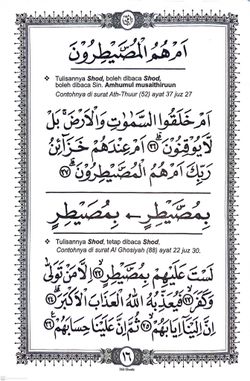 اَمْ هُمُ الْمُصَۜيْطِرُوْنَ
❖ Tulisannya Shod, boleh dibaca Shod,
boleh dibaca Sin. Amhumul musaithiruun
Contohnya di surat Ath-Thuur (52) ayat 37 juz 27
اَمْ خَلَقُوا السَّمٰوٰتِ وَالْاَرْضَۚ بَلْ
لَّا يُوْقِنُوْنَۗ ٣٦ اَمْ عِنْدَهُمْ خَزَاۤئِنُ
رَبِّكَ اَمْ هُمُ الْمُصَۜيْطِرُوْنَۗ ٣٧
بِمُصَۜيْطِرٍ ← بِمُصَيْطِرٍ
❖ Tulisannya Shod, tetap dibaca Shod.
Contohnya di surat Al Ghosiyah (88) ayat 22 juz 30.
لَسْتَ عَلَيْهِمْ بِمُصَۜيْطِرٍۙ ٢٢ اِلَّا مَنْ تَوَلّٰى
وَكَفَرَۙ ٢٣ فَيُعَذِّبُهُ اللّٰهُ الْعَذَابَ الْاَكْبَرَۗ ٢٤
اِنَّ اِلَيْنَآ اِيَابَهُمْۙ ٢٥ ثُمَّ اِنَّ عَلَيْنَا حِسَابَهُمْ ٢٦
١٦